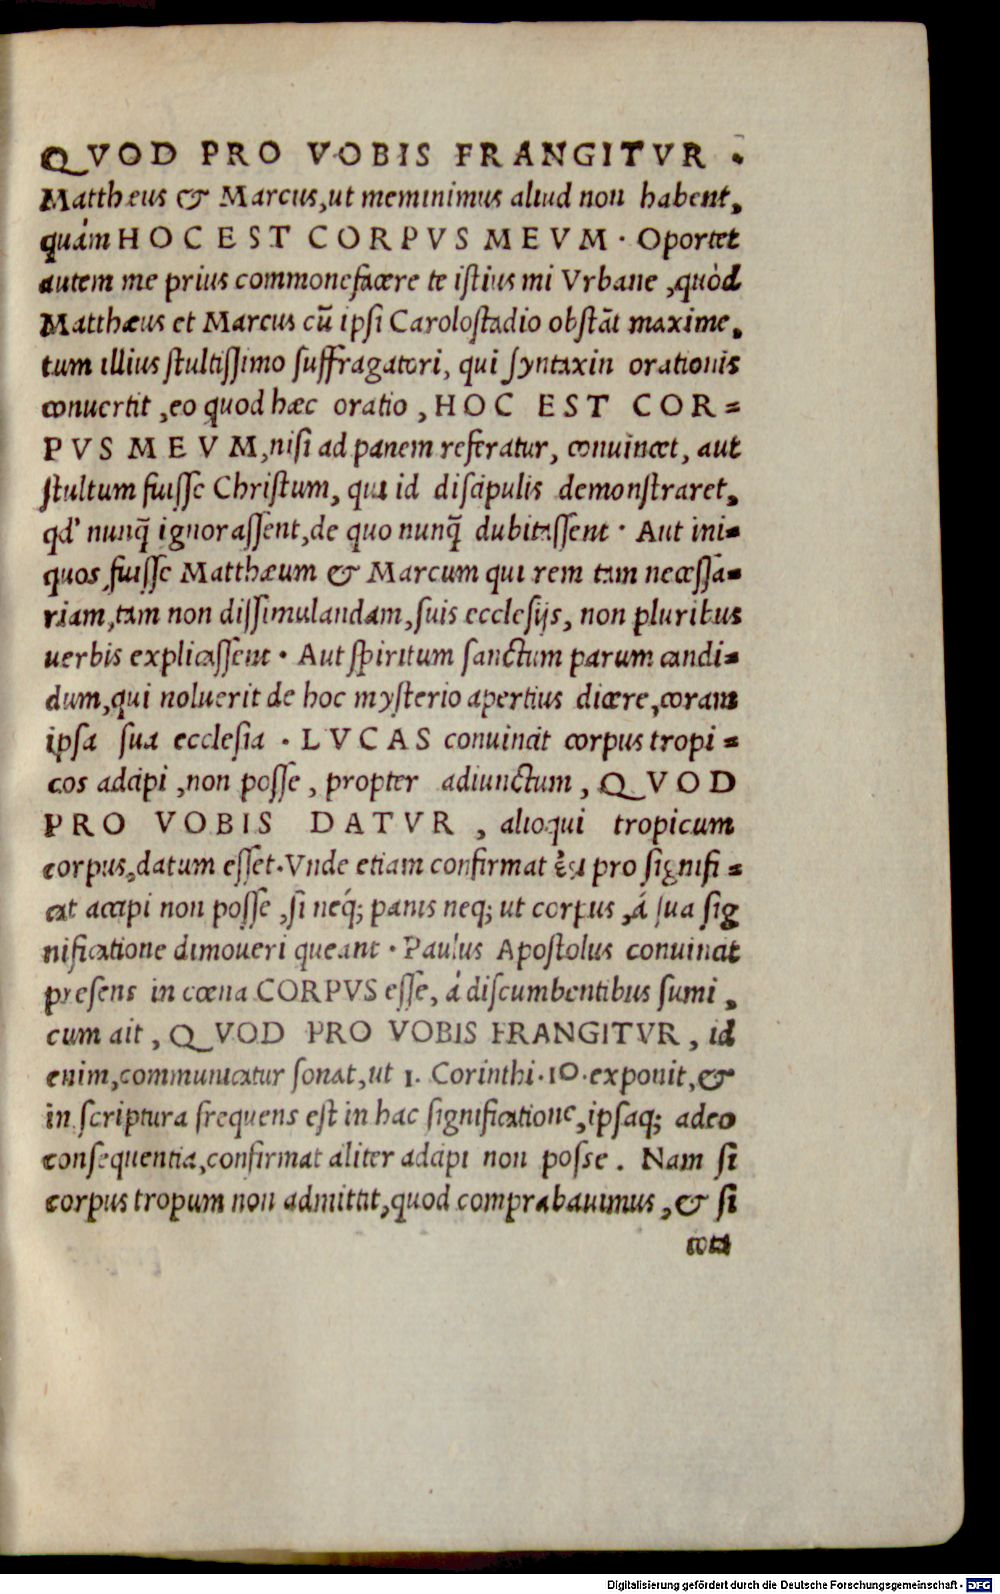 QVOD PRO VOBIS FRANGITVR .
Matthæus & Marcus, ut meminimus aliud non habent,
quám HOC EST CORPVS MEVM. Oportet
autem me prius commonefacere te istius mi Vrbane, quòd
Matthæus et Marcus cũ ipsi Carolostadio obstãt maxime,
tum illius stultissimo suffragatori, qui syntaxin orationis
conuertit, eo quod hæc oratio, HOC EST COR=
PVS MEVM, nisi ad panem referatur, conuincet, aut
stultum fuisse Christum, qui id discipulis demonstraret,
qd' nunq̃ ignorassent, de quo nunq̃ dubitassent. Aut ini=
quos fuisse Matthæum & Marcum qui rem tam necessa=
riam, tam non dissimulandam, suis ecclesijs, non pluribus
uerbis explicassent. Aut spiritum sanctum parum candi=
dum, qui noluerit de hoc mysterio apertius dicere, coram
ipsa sua ecclesia. LVCAS conuincit corpus tropi=
cos accipi, non posse, propter adiunctum, QVOD
PRO VOBIS DATVR, alioqui tropicum
corpus, datum esset. Vnde etiam confirmat pro signifi=
cat accipi non posse, si neq; panis neq; ut corpus, á sua sig
nificatione dimoueri queant. Paulus Apostolus conuincit
presens in cœna CORPVS esse, á discumbentibus sumi,
cum ait, QVOD PRO VOBIS FRANGITVR, id
enim, communicatur sonat, ut 1. Corinthi. 10. exponit, &
in scriptura frequens est in hac significatione, ipsaq; adeo
consequentia, confirmat aliter accipi non posse. Nam si
corpus tropum non admittit, quod comprabauimus, & si
Digitalisierung gefördert durch die Deutsche Forschungsgemeinschaft - DFG